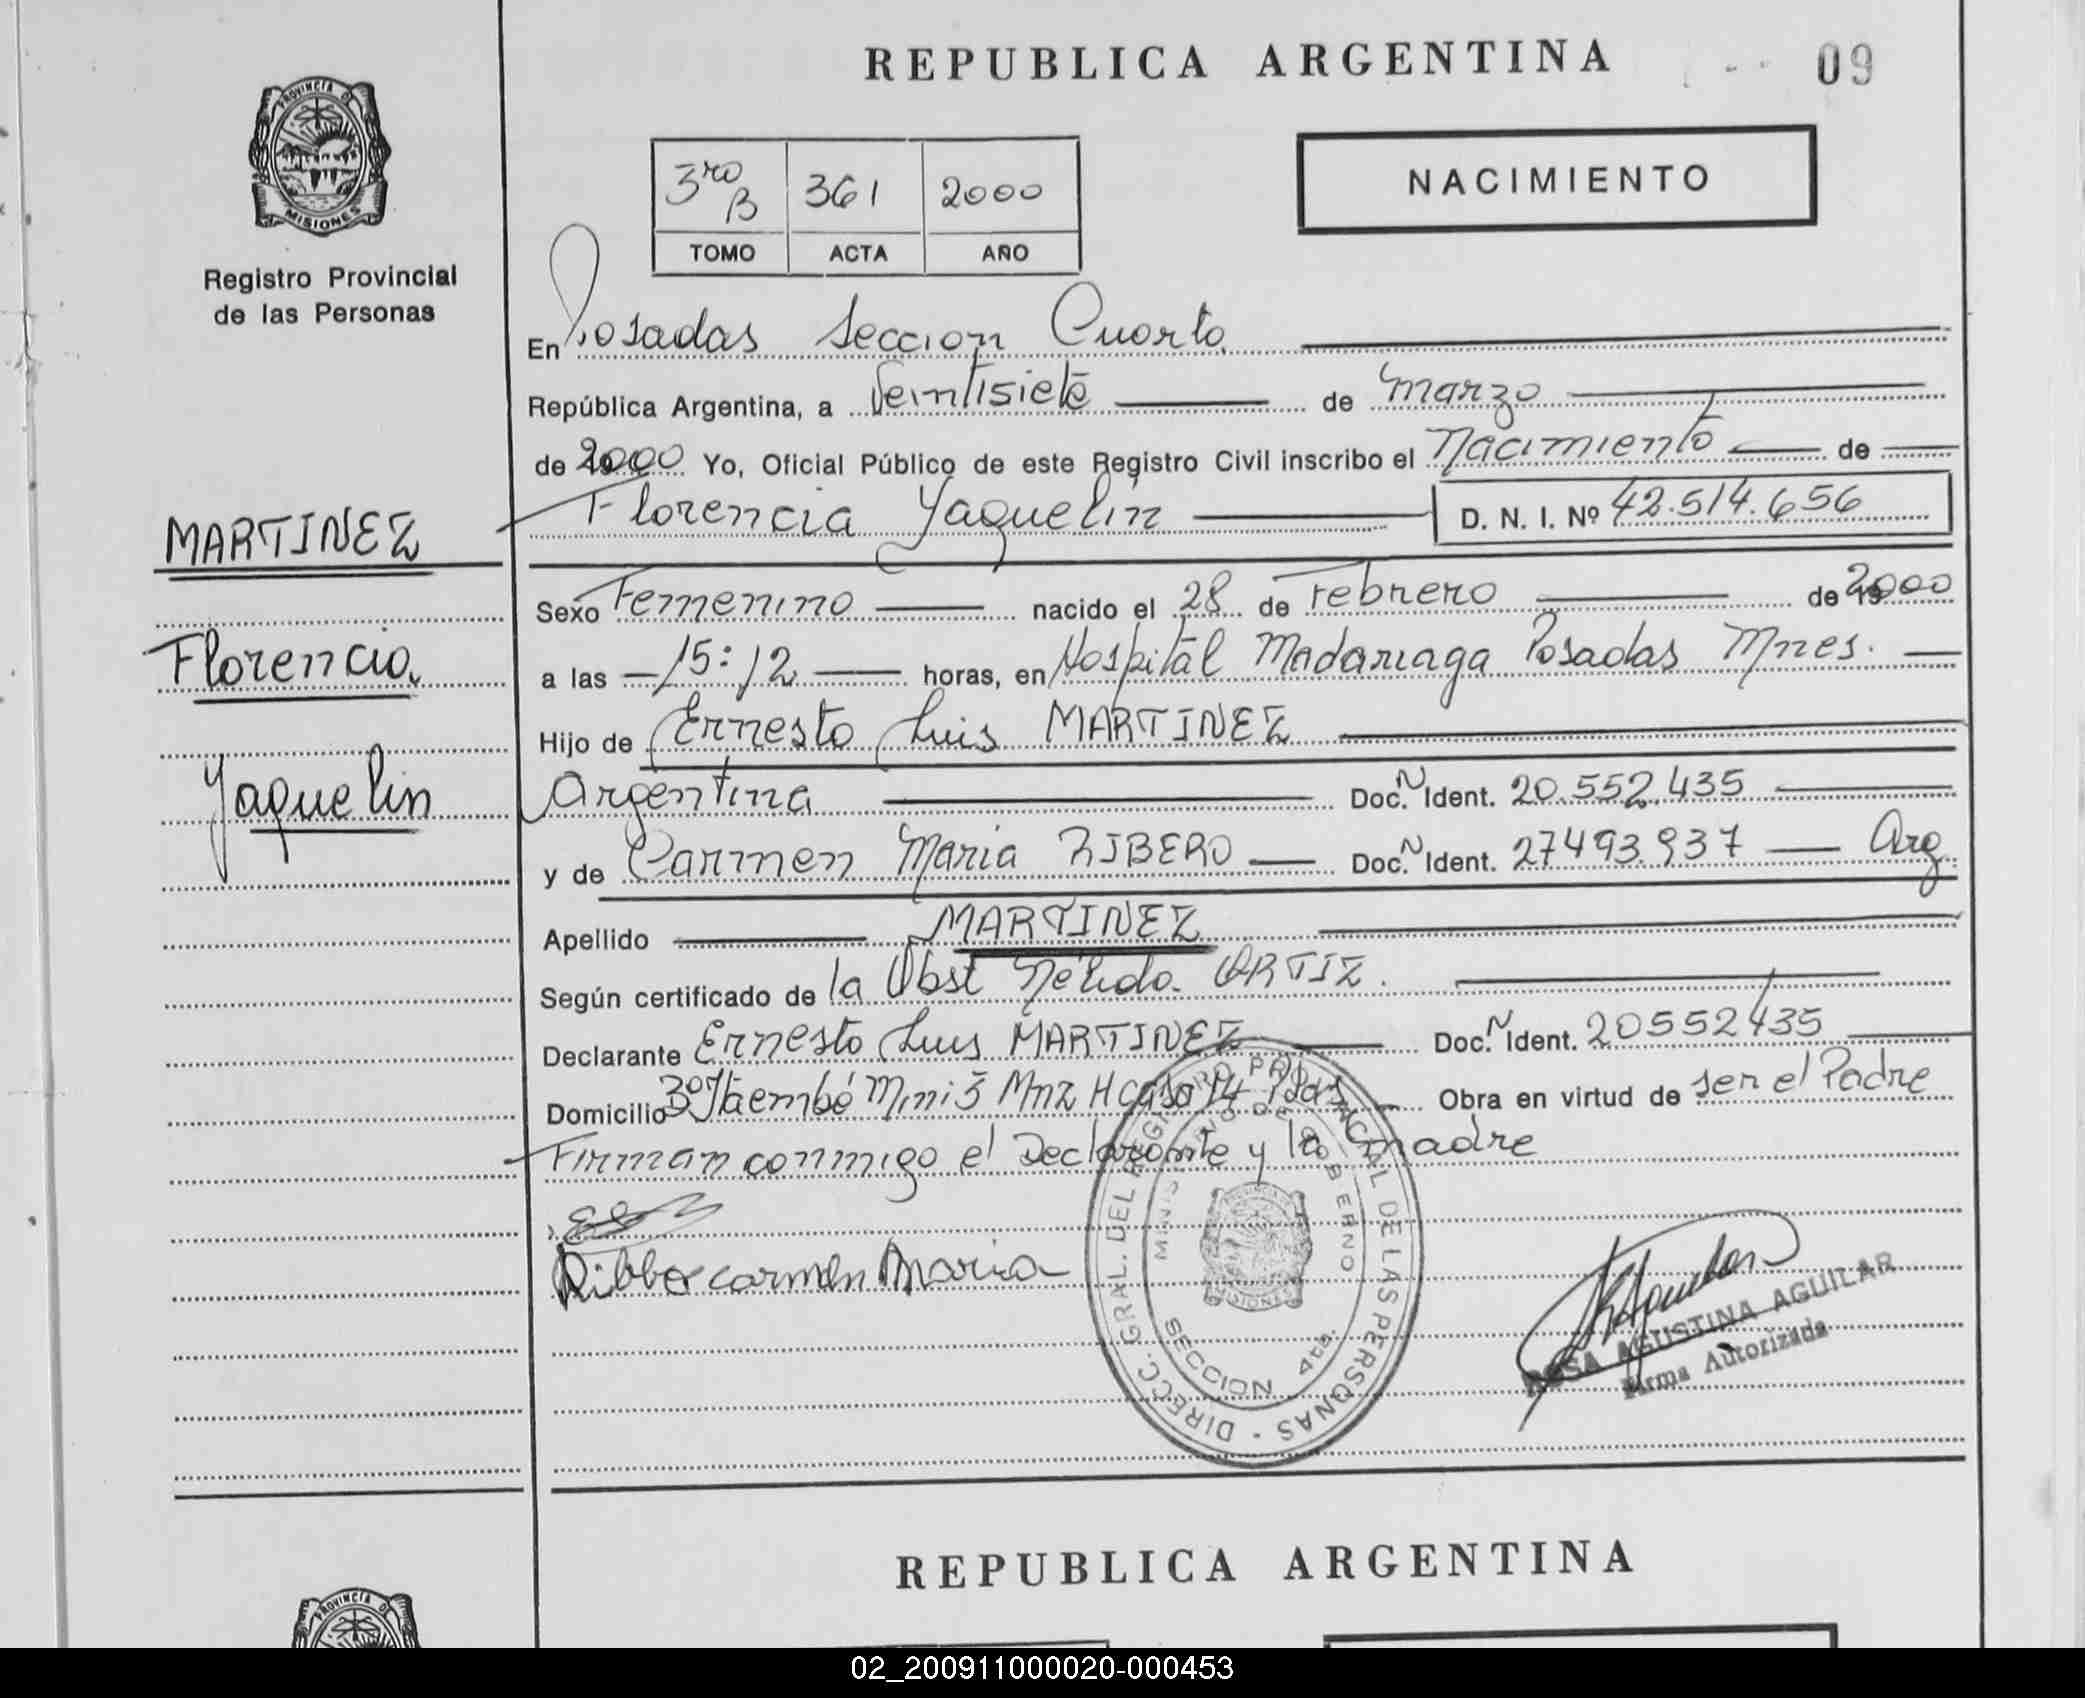 REPUBLICA ARGENTINA
09
PROVINCIA DE
MISIONES
Registro Provincial
de las Personas
3ro B 361 2000
TOMO ACTA AÑO
NACIMIENTO
En Posadas Seccion Cuarta
República Argentina, a Veintisiete de Marzo
de 2000 Yo, Oficial Público de este Registro Civil inscribo el Nacimiento de
Florencia Yaquelin D. N. I. Nº 42.514.656
MARTINEZ
Florencia
Yaquelin
Sexo Femenino nacido el 28 de Febrero de 2000
a las 15:12 horas, en Hospital Madariaga Posadas Mnes.
Hijo de Ernesto Luis MARTINEZ
Argentina Doc. N Ident. 20.552.435
y de Carmen Maria RIBERO Doc. N Ident. 27493.937 Arg.
Apellido MARTINEZ
Según certificado de la Obst Nélida ORTIZ.
Declarante Ernesto Luis MARTINEZ Doc. N Ident. 20552435
Domicilio Bº Itaembé Mini 5 Mnz H casa 14 Pdas Obra en virtud de ser el Padre
Firman conmigo el Declarante y la madre
carmen Maria
DIRECC. GRAL. DEL REGISTRO PROVINCIAL DE LAS PERSONAS
MINISTERIO DE GOBIERNO
PROVINCIA DE
MISIONES
SECCION 4ta.
ROSA AGUSTINA AGUILAR
Firma Autorizada
REPUBLICA ARGENTINA
PROVINCIA DE
02_200911000020-000453